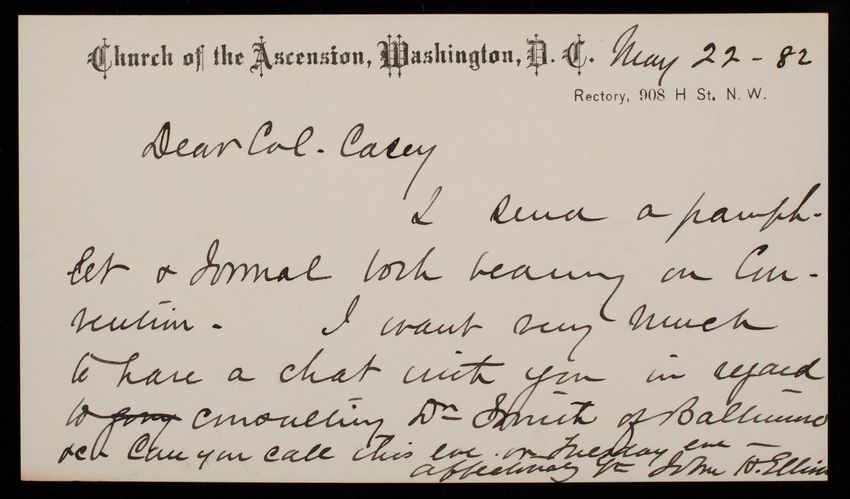 Church of the Ascension, Washington, D. C. May 22 - 82
Rectory, 908 H St. N. W.
Dear Col. Casey
I send a pamph-
let & Journal both bearing on Con-
vention. I want very much
to have a chat with you in regard
to going consulting Dr Smith of Baltimore
&c. Can you call this eve. or Tuesday eve -
affectionately yrs John H. Elliott